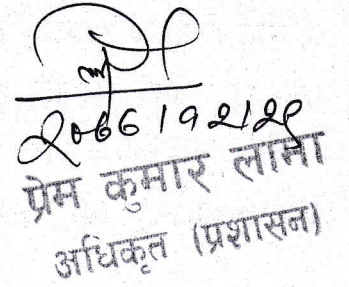 २०६६।१२।२९
प्रेम कुमार लामा
अधिकृत (प्रशासन)